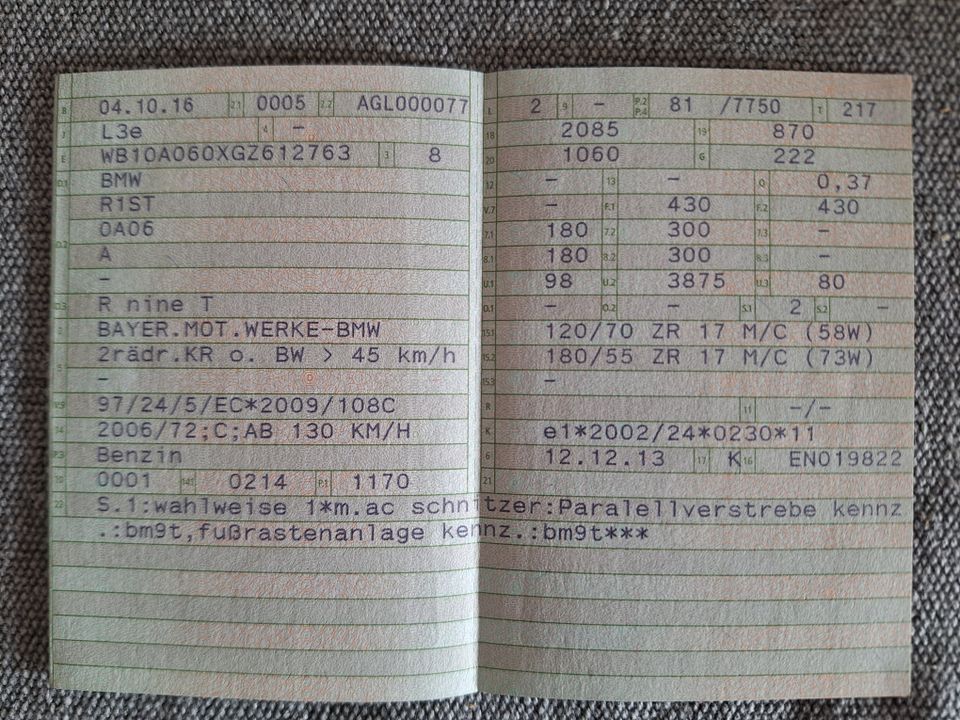 B 04.10.16 2.1 0005 2.2 AGL000077
J L3e 4 –
E WB10A060XGZ612763 3 8
D.1 BMW
R1ST
0A06
D.2 A
–
D.3 R nine T
2 BAYER.MOT.WERKE-BMW
2rädr.KR o. BW > 45 km/h
5 –
V.9 97/24/5/EC*2009/108C
14 2006/72;C;AB 130 KM/H
P.3 Benzin
10 0001 14.1 0214 P.1 1170
L 2 9 – P.2 P.4 81 /7750 T 217
18 2085 19 870
20 1060 G 222
12 – 13 – Q 0,37
V.7 – F.1 430 F.2 430
7.1 180 7.2 300 7.3 –
8.1 180 8.2 300 8.3 –
U.1 98 U.2 3875 U.3 80
O.1 – O.2 – S.1 2 S.2 –
15.1 120/70 ZR 17 M/C (58W)
15.2 180/55 ZR 17 M/C (73W)
15.3 –
R 11 –/–
K e1*2002/24*0230*11
6 12.12.13 17 K 16 EN019822
21
22 S.1:wahlweise 1*m.ac schnitzer:Paralellverstrebe kennz
.:bm9t,fußrastenanlage kennz.:bm9t***